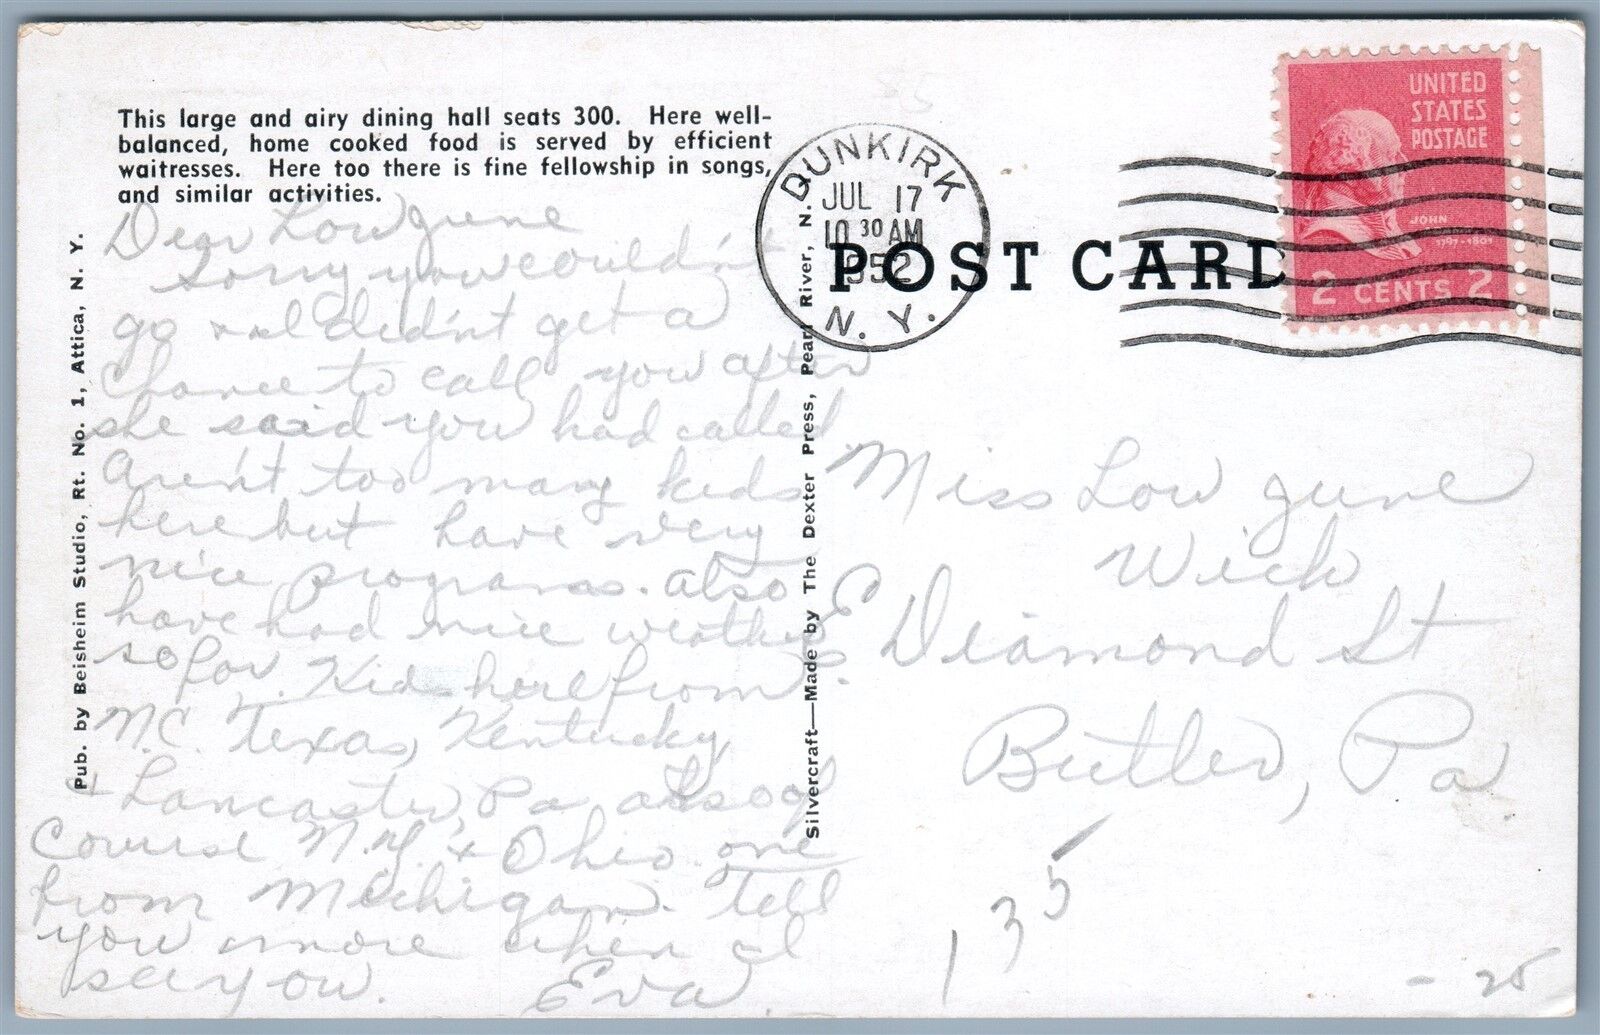 This large and airy dining hall seats 300. Here well-
balanced, home cooked food is served by efficient
waitresses. Here too there is fine fellowship in songs,
and similar activities.
Dear Low June
Sorry you couldn't
go and I didn't get a
chance to call you after
she said you had called
Aren't too many kids
here but have very
nice programs. Also
have had nice weather
so far. Kids here from
N.C. Texas, Kentucky,
+ Lancaster, Pa also of
course N.Y. + Ohio one
from Michigan. Tell
you more when I
see you. Eva
Pub. by Beisheim Studio, Rt. No. 1, Attica, N. Y.
Silvercraft—Made by The Dexter Press, Pearl River, N.
DUNKIRK
JUL 17
10 30 AM
1952
N. Y.
POST CARD
UNITED
STATES
POSTAGE
JOHN
1797-1801
2 CENTS 2
Miss Low June
Wick
E Diamond St
Butler, Pa
135
- 25